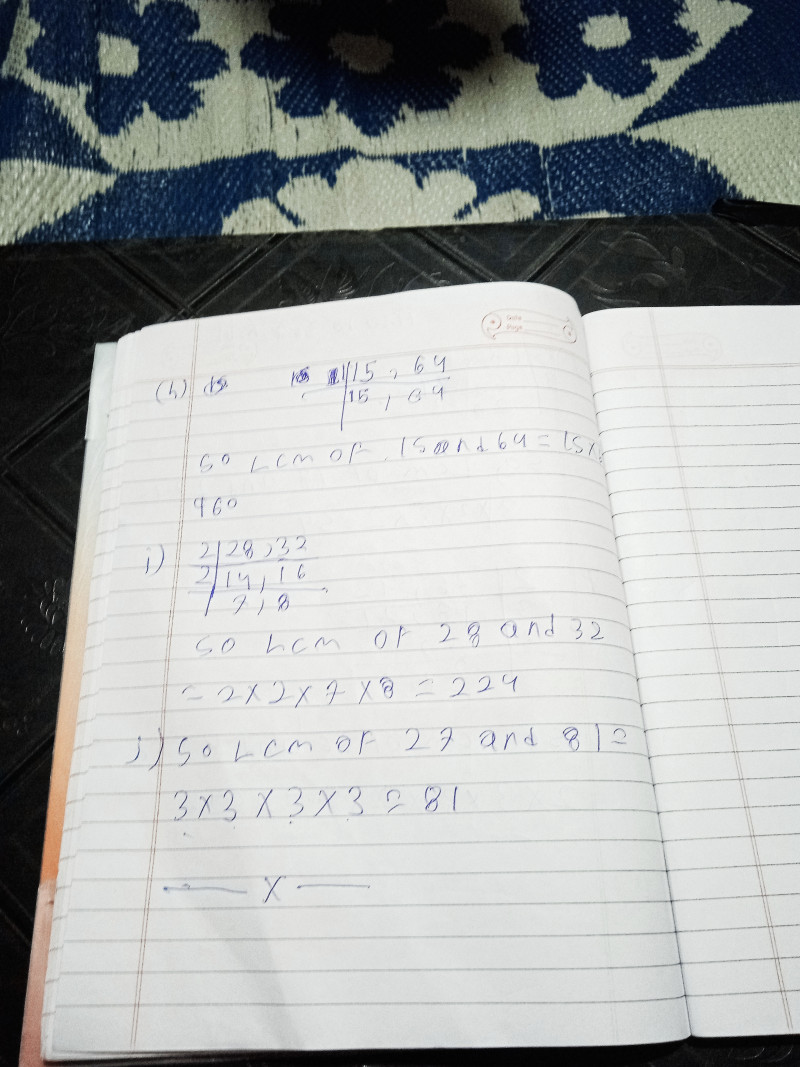 Date
Page
(h) 1 15, 64
15, 64
SO LCM OF 15 and 64 = 15X
960
i) 2 28, 32
2 14, 16
7, 8
SO LCM OF 28 and 32
= 2X2X7X8 = 224
j) SO LCM OF 27 and 81=
3X3X3X3=81
X